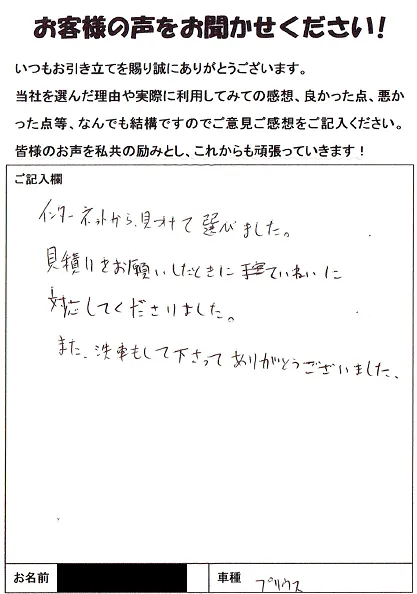 お客様の声をお聞かせください！
いつもお引き立てを賜り誠にありがとうございます。
当社を選んだ理由や実際に利用してみての感想、良かった点、悪か
った点等、なんでも結構ですのでご意見ご感想をご記入ください。
皆様のお声を私共の励みとし、これからも頑張っていきます！
ご記入欄
インターネットから、見つけて選びました。
見積りをお願いしたときにていねいに
対応してくださりました。
また、洗車もして下さってありがとうございました。
お名前
車種
プリウス